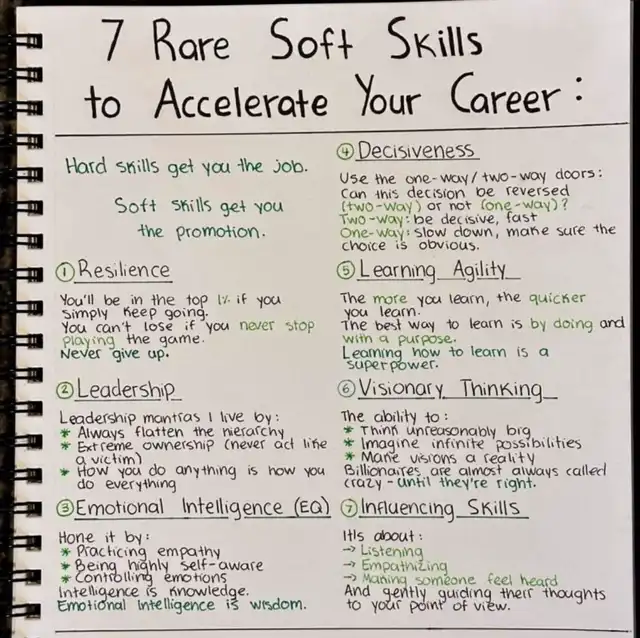 7 Rare Soft Skills
to Accelerate Your Career:
Hard skills get you the job.
Soft skills get you
the promotion.
① Resilience
You'll be in the top 1% if you
simply keep going.
You can't lose if you never stop
playing the game.
Never give up.
② Leadership
Leadership mantras I live by:
* Always flatten the hierarchy
* Extreme ownership (never act like
a victim)
* How you do anything is how you
do everything
③ Emotional Intelligence (EQ)
Hone it by:
* Practicing empathy
* Being highly self-aware
* Controlling emotions
Intelligence is knowledge.
Emotional Intelligence is wisdom.
④ Decisiveness
Use the one-way/two-way doors:
Can this decision be reversed
(two-way) or not (one-way)?
Two-way: be decisive, fast
One-way: slow down, make sure the
choice is obvious.
⑤ Learning Agility
The more you learn, the quicker
you learn.
The best way to learn is by doing and
with a purpose.
Learning how to learn is a
superpower.
⑥ Visionary Thinking
The ability to:
* Think unreasonably big
* Imagine infinite possibilities
* Make visions a reality
Billionaires are almost always called
crazy - until they're right.
⑦ Influencing Skills
It's about:
→ Listening
→ Empathizing
→ Making someone feel heard
And gently guiding their thoughts
to your point of view.